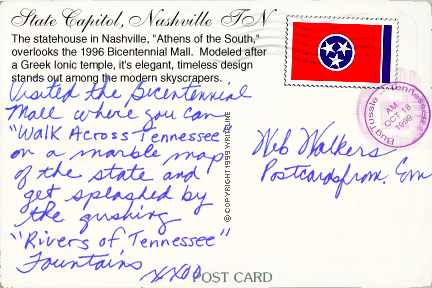 State Capitol, Nashville TN
The statehouse in Nashville, "Athens of the South,"
overlooks the 1996 Bicentennial Mall. Modeled after
a Greek Ionic temple, it's elegant, timeless design
stands out among the modern skyscrapers.
Visited the Bicentennial
Mall where you can
"Walk Across Tennessee"
on a marble map
of the state and
get splashed by
the gushing
"Rivers of Tennessee"
Fountains
xxoo
© COPYRIGHT 1999
Web Walkers
Postcardsfrom.Com
Bug Tussle Tennessee
AM
OCT 18
1999
POST CARD